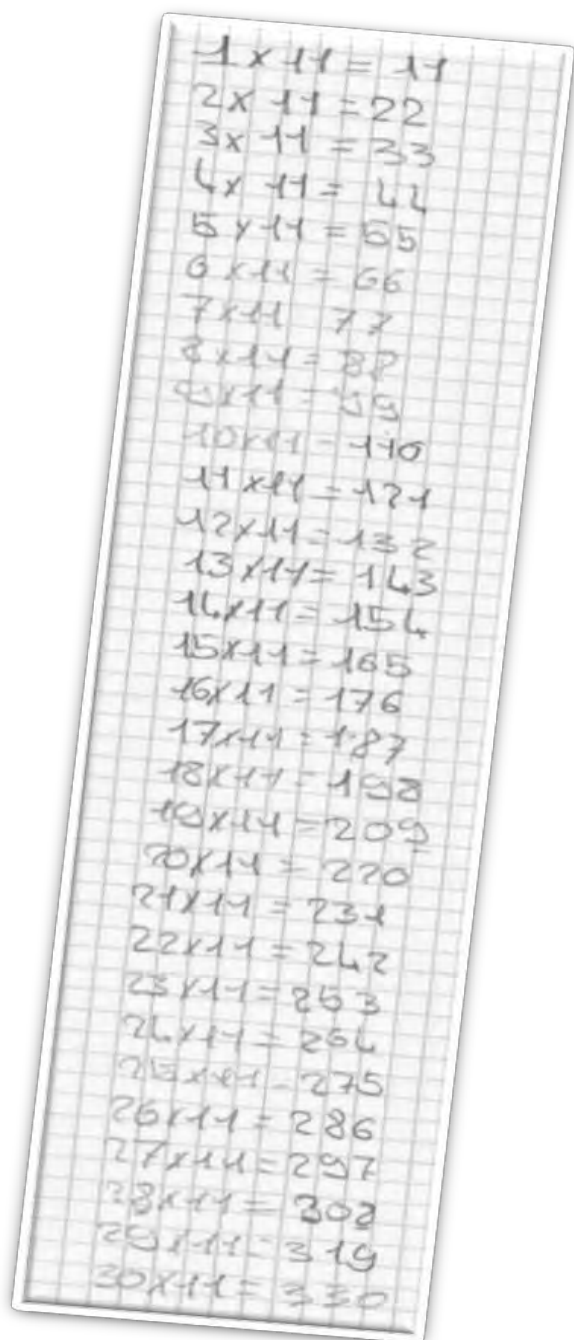 1 x 11 = 11
2 x 11 = 22
3 x 11 = 33
4 x 11 = 44
5 x 11 = 55
6 x 11 = 66
7 x 11 77
8 x 11 = 88
9 x 11 = 99
10 x 11 = 110
11 x 11 = 121
12 x 11 = 132
13 x 11 = 143
14 x 11 = 154
15 x 11 = 165
16 x 11 = 176
17 x 11 = 187
18 x 11 = 198
19 x 11 = 209
20 x 11 = 220
21 x 11 = 231
22 x 11 = 242
23 x 11 = 253
24 x 11 = 264
25 x 11 = 275
26 x 11 = 286
27 x 11 = 297
28 x 11 = 308
29 x 11 = 319
30 x 11 = 330